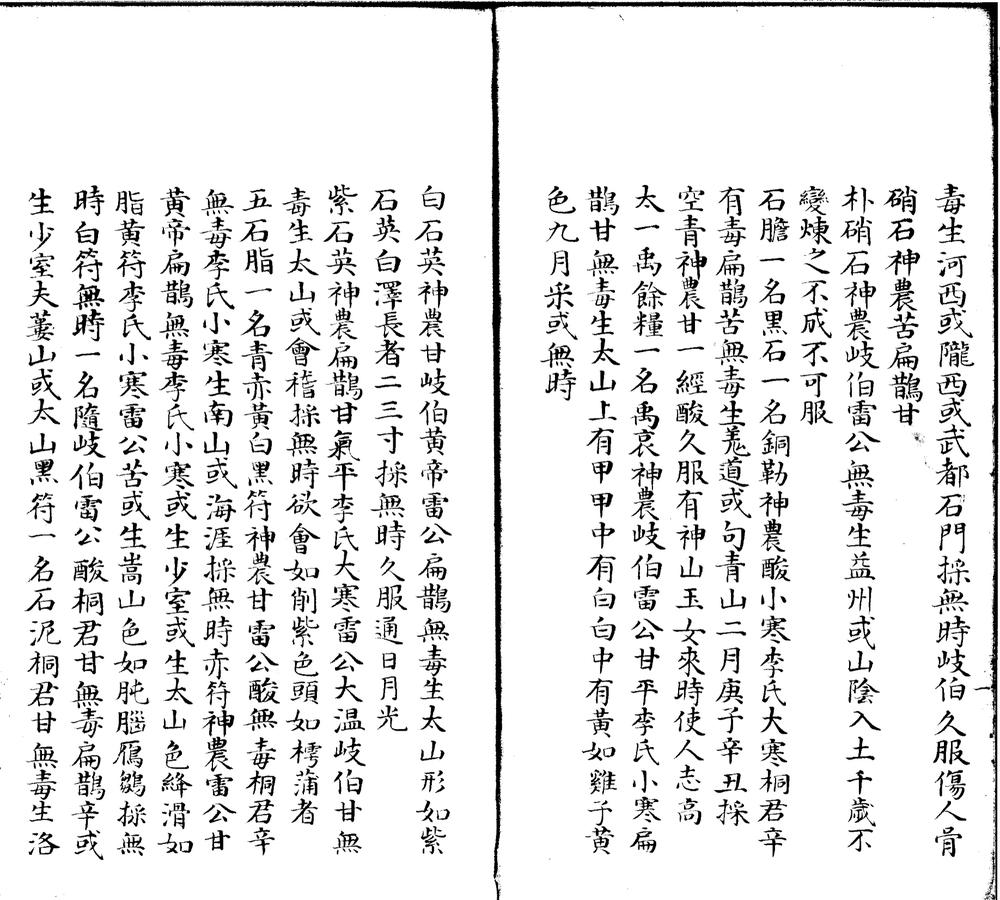 毒生河西或隴西或武都石門採無時岐伯久服傷人骨
硝石神農苦扁鵲甘
朴硝石神農岐伯雷公無毒生益州或山陰入土千歲不
變煉之不成不可服
石膽一名黑石一名銅勒神農酸小寒李氏大寒桐君辛
有毒扁鵲苦無毒生羗道或句青山二月庚子辛丑採
空青神農甘一經酸久服有神山玉女來時使人志高
太一禹餘糧一名禹哀神農岐伯雷公甘平李氏小寒扁
鵲甘無毒生太山上有甲甲中有白白中有黃如雞子黃
色九月采或無時
一
白石英神農甘岐伯黃帝雷公扁鵲無毒生太山形如紫
石英白澤長者二三寸採無時久服通日月光
紫石英神農扁鵲甘氣平李氏大寒雷公大温岐伯甘無
毒生太山或會稽採無時欲會如削紫色頭如樗蒲者
五石脂一名青赤黃白黑符神農甘雷公酸無毒桐君辛
無毒李氏小寒生南山或海涯採無時赤符神農雷公甘
黃帝扁鵲無毒李氏小寒或生少室或生太山色絳滑如
脂黃符李氏小寒雷公苦或生嵩山色如肫腦鴈鶵採無
時白符無時一名隨岐伯雷公酸桐君甘無毒扁鵲辛或
生少室夫蔞山或太山黑符一名石泥桐君甘無毒生洛